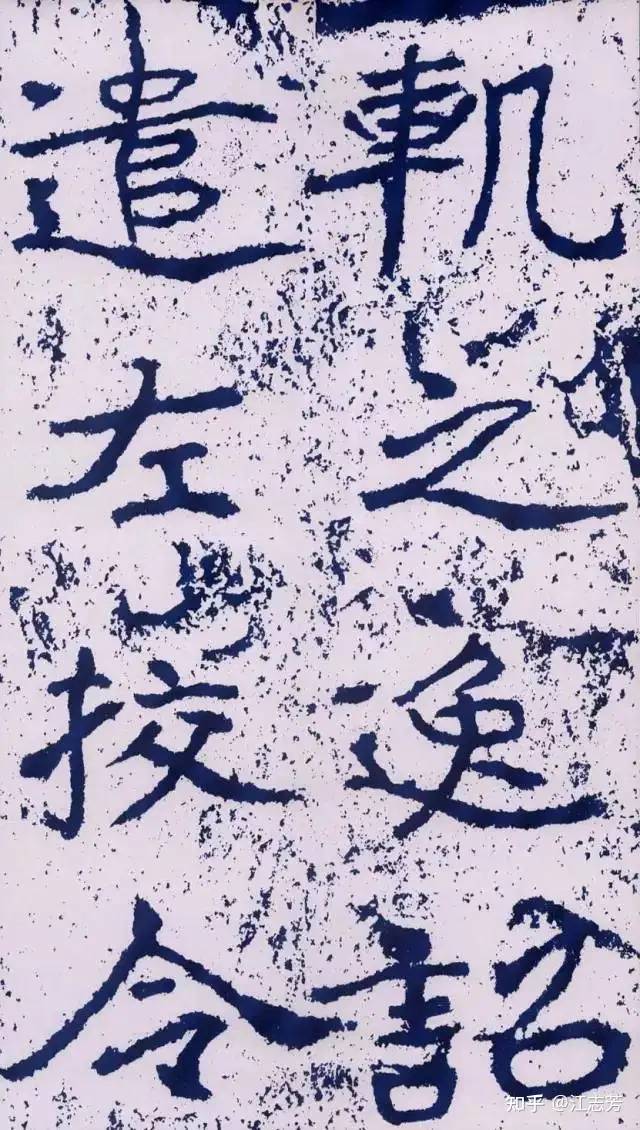 軌之逸詔
遣左挍令
知乎 @江志芳